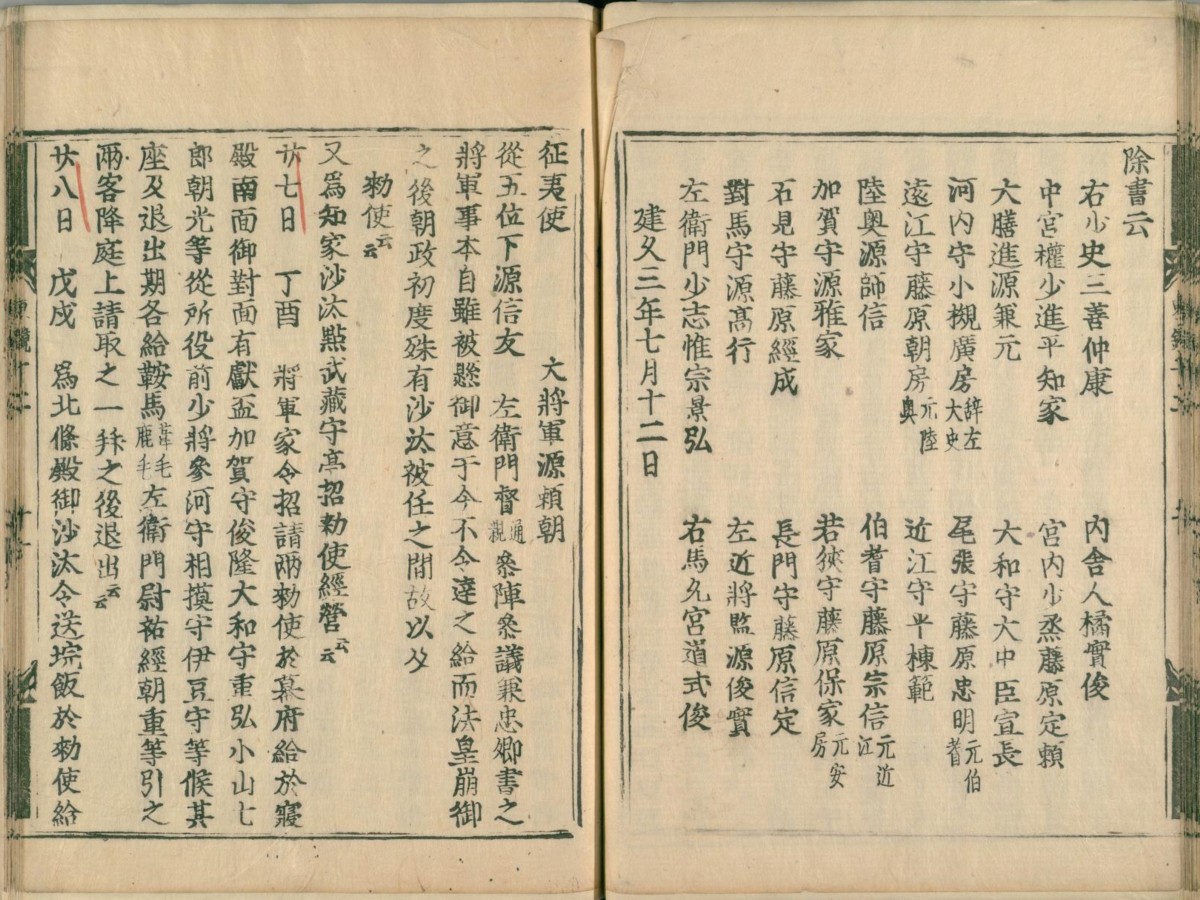 除書云
右少史三善仲康 内舎人橘實俊
中宮權少進平知家 宮内少丞藤原定頼
大膳進源兼元 大和守大中臣宣長
河内守小槻廣房辞左大史 尾張守藤原忠明元伯耆
遠江守藤原朝房元陸奥 近江守平棟範
陸奥源師信 伯耆守藤原宗信元近江
加賀守源雅家 若狹守藤原保家元安房
石見守藤原經成 長門守藤原信定
對馬守源髙行 左近將監源俊實
左衛門少志惟宗景弘 右馬允宮道式俊
建久三年七月十二日
征夷使 大將軍源頼朝
從五位下源信友 左衛門督通親叅陣叅議兼忠卿書之
將軍事本自雖被懸御意于今不令達之給而法皇崩御
之後朝政初度殊有沙汰被任之間故以夕
勅使云云
又爲知家沙汰點武藏守亭招勅使經營云云
廿七日 丁酉 將軍家令招請兩勅使於幕府給於寢
殿南面御對面有獻盃加賀守俊隆大和守重弘小山七
郎朝光等從所役前少將參河守相摸守伊豆守等候其
座及退出期各給鞍馬葦毛鹿毛左衛門尉祐經朝重等引之
兩客降庭上請取之一拜之後退出云云
廿八日 戊戌 爲北條殿御沙汰令送埦飯於勅使給